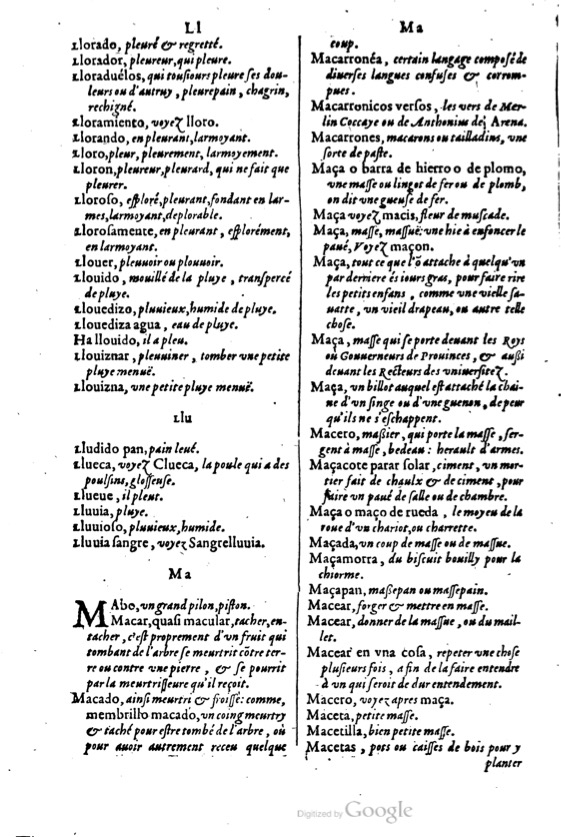 Ll
Llorado, pleuré & regretté.
Llorador, pleureur, qui pleure.
Lloraduélos, qui tousiours pleure ses dou-
leurs ou d'autruy, pleurepain, chagrin,
rechigné.
Lloramiento, voyez lloro.
Llorando, en pleurant, larmoyant.
Lloro, pleur, pleurement, larmoyement.
Lloron, pleureur, pleurard, qui ne fait que
pleurer.
Lloroso, esploré, pleurant, fondant en lar-
mes, larmoyant, deplorable.
Llorosamente, en pleurant, esplorément,
en larmoyant.
Llouer, pleuuoir ou plouuoir.
Llouido, mouillé de la pluye, transpercé
de pluye.
Llouedizo, pluuieux, humide de pluye.
Llouediza agua, eau de pluye.
Ha llouido, il a pleu.
Llouiznar, pleuuiner, tomber vne petite
pluye menuë.
Llouizna, vne petite pluye menuë.
Llu
Lludido pan, pain leué.
Llueca, voyez Clueca, la poule qui a des
poulsins, glosseuse.
Llueue, il pleut.
Lluuia, pluye.
Lluuioso, pluuieux, humide.
Lluuia sangre, voyez Sangrelluuia.
Ma
MAbo, vn grand pilon, piston.
Macar, quasi macular, tacher, en-
tacher, c'est proprement d'vn fruit qui
tombant de l'arbre se meurtrit cōtre ter-
re ou contre vne pierre, & se pourrit
par la meurtrisseure qu'il reçoit.
Macado, ainsi meurtri & froissé: comme,
membrillo macado, vn coing meurtry
& taché pour estre tombé de l'arbre, où
pour auoir autrement receu quelque
Ma
coup.
Macarronéa, certain langage composé de
diuerses langues confuses & corrom-
pues.
Macarronicos versos, les vers de Mer-
lin Coccaye ou de Anthonius de Arena.
Macarrones, macarons ou tailladins, vne
sorte de paste.
Maça o barra de hierro o de plomo,
vne masse ou lingot de fer ou de plomb,
on dit vne gueuse de fer.
Maça voyez macis, fleur de muscade.
Maça, masse, massuë: vne hie à enfoncer le
paué, Voyez maçon.
Maça, tout ce que l'ō attache à quelqu'vn
par derriere és iours gras, pour faire rire
les petits enfans, comme vne vielle sa-
uatte, vn vieil drapeau, ou autre telle
chose.
Maça, masse qui se porte deuant les Roys
ou Gouuerneurs de Prouinces, & aussi
deuant les Recteurs des vniuersitez.
Maça, vn billot auquel est attaché la chai-
ne d'vn singe ou d'vne guenon, de peur
qu'ils ne s'eschappent.
Macero, massier, qui porte la masse, ser-
gent à masse, bedeau: herault d'armes.
Maçacote parar solar, ciment, vn mor-
tier fait de chaulx & de ciment, pour
faire vn paué de salle ou de chambre.
Maça o maço de rueda, le moyeu de la
roue d'vn chariot, ou charrette.
Maçada, vn coup de masse ou de massue.
Maçamorra, du biscuit bouilly pour la
chiorme.
Maçapan, massepan ou massepain.
Macear, forger & mettre en masse.
Macear, donner de la massue, ou du mail-
let.
Macear en vna cosa, repeter vne chose
plusieurs fois, a fin de la faire entendre
à vn qui seroit de dur entendement.
Macero, voyez apres maça.
Maceta, petite masse.
Macetilla, bien petite masse.
Macetas, pots ou caisses de bois pour y
planter
Digitized by Google